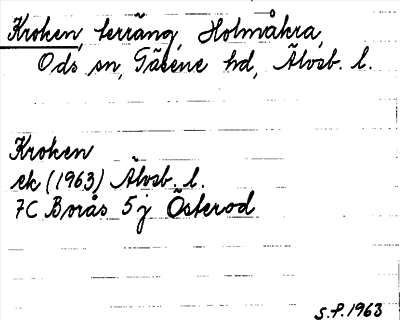 Kroken, terräng, Holmåkra,
Ods sn, Gäsene hd, Älvsb. l.
Kroken
ek (1963) Älvsb. l.
7C Borås 5 j Österod
S.P. 1963